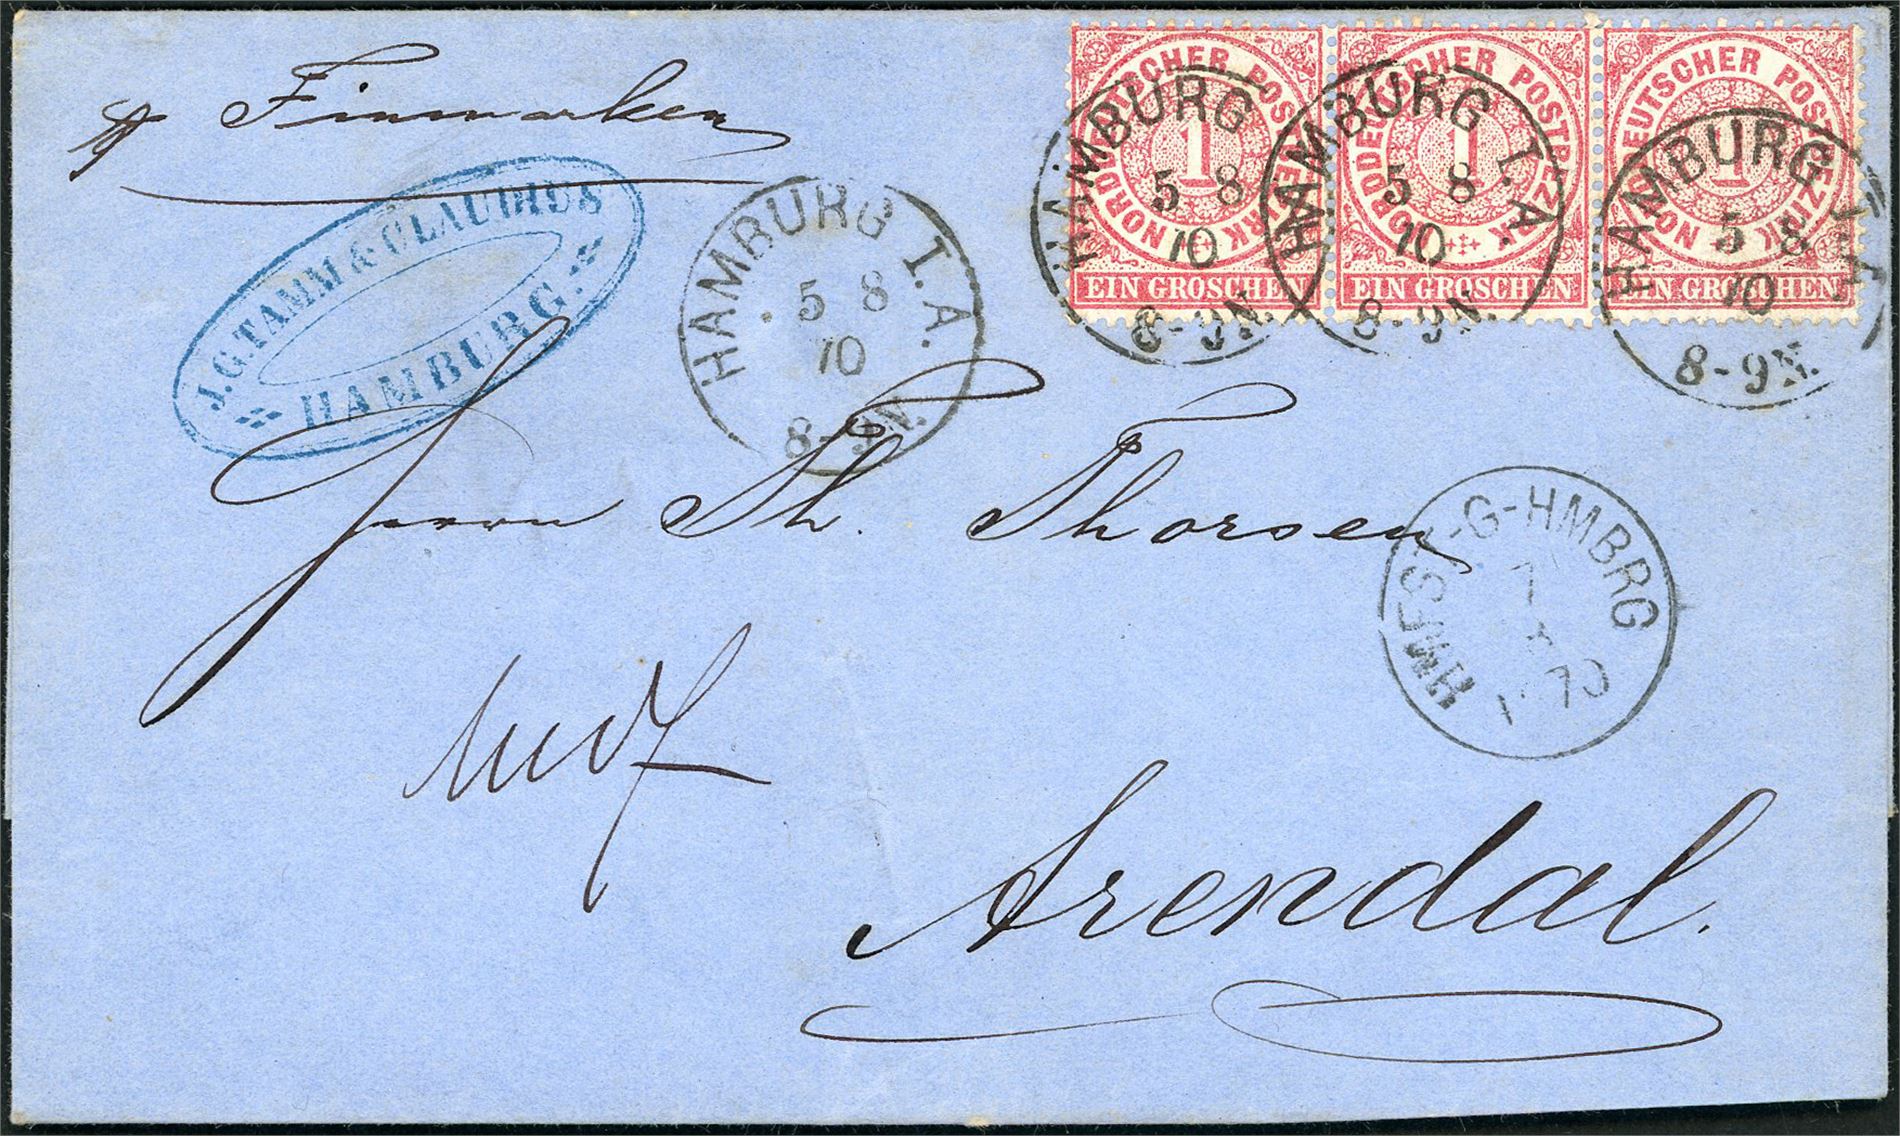 pr Finmarken
J.G. TAMM & CLAUDIUS
HAMBURG.
HAMBURG I. A.
5 8
10
8-9N.
NORDDEUTSCHER POSTBEZIRK
1
EIN GROSCHEN
HAMBURG I. A.
5 8
10
8-9N.
NORDDEUTSCHER POSTBEZIRK
1
EIN GROSCHEN
HAMBURG I. A.
5 8
10
8-9N.
NORDDEUTSCHER POSTBEZIRK
1
EIN GROSCHEN
HAMBURG I. A.
5 8
10
8-9N.
Herrn Th. Thorsen
-G-HMBRG
7
70
Arendal.